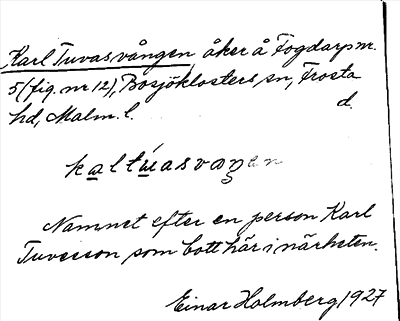 Karl Tuvasvången åker å Fogdarp nr.
5 (fig. nr 12), Bosjöklosters sn, Frosta
hd, Malm. l. d.
kaltúasvaŋen
Namnet efter en person Karl
Tuvesson som bott här i närheten.
Einar Holmberg 1927